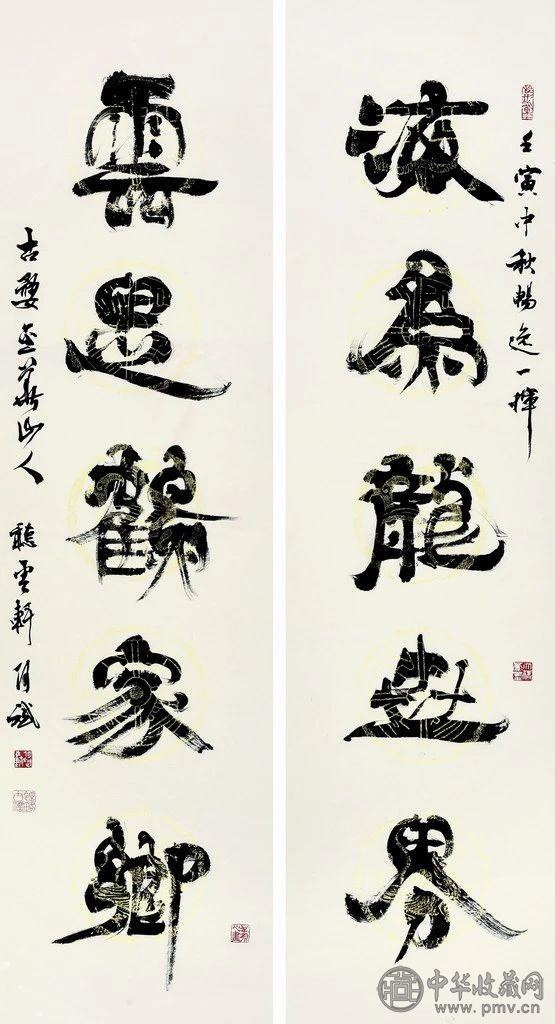 壬寅中秋暢逸一揮
海為龍世界
雲是鶴家鄉
古婺華山人 聽雲軒
中华收藏网
www.pmv.cn